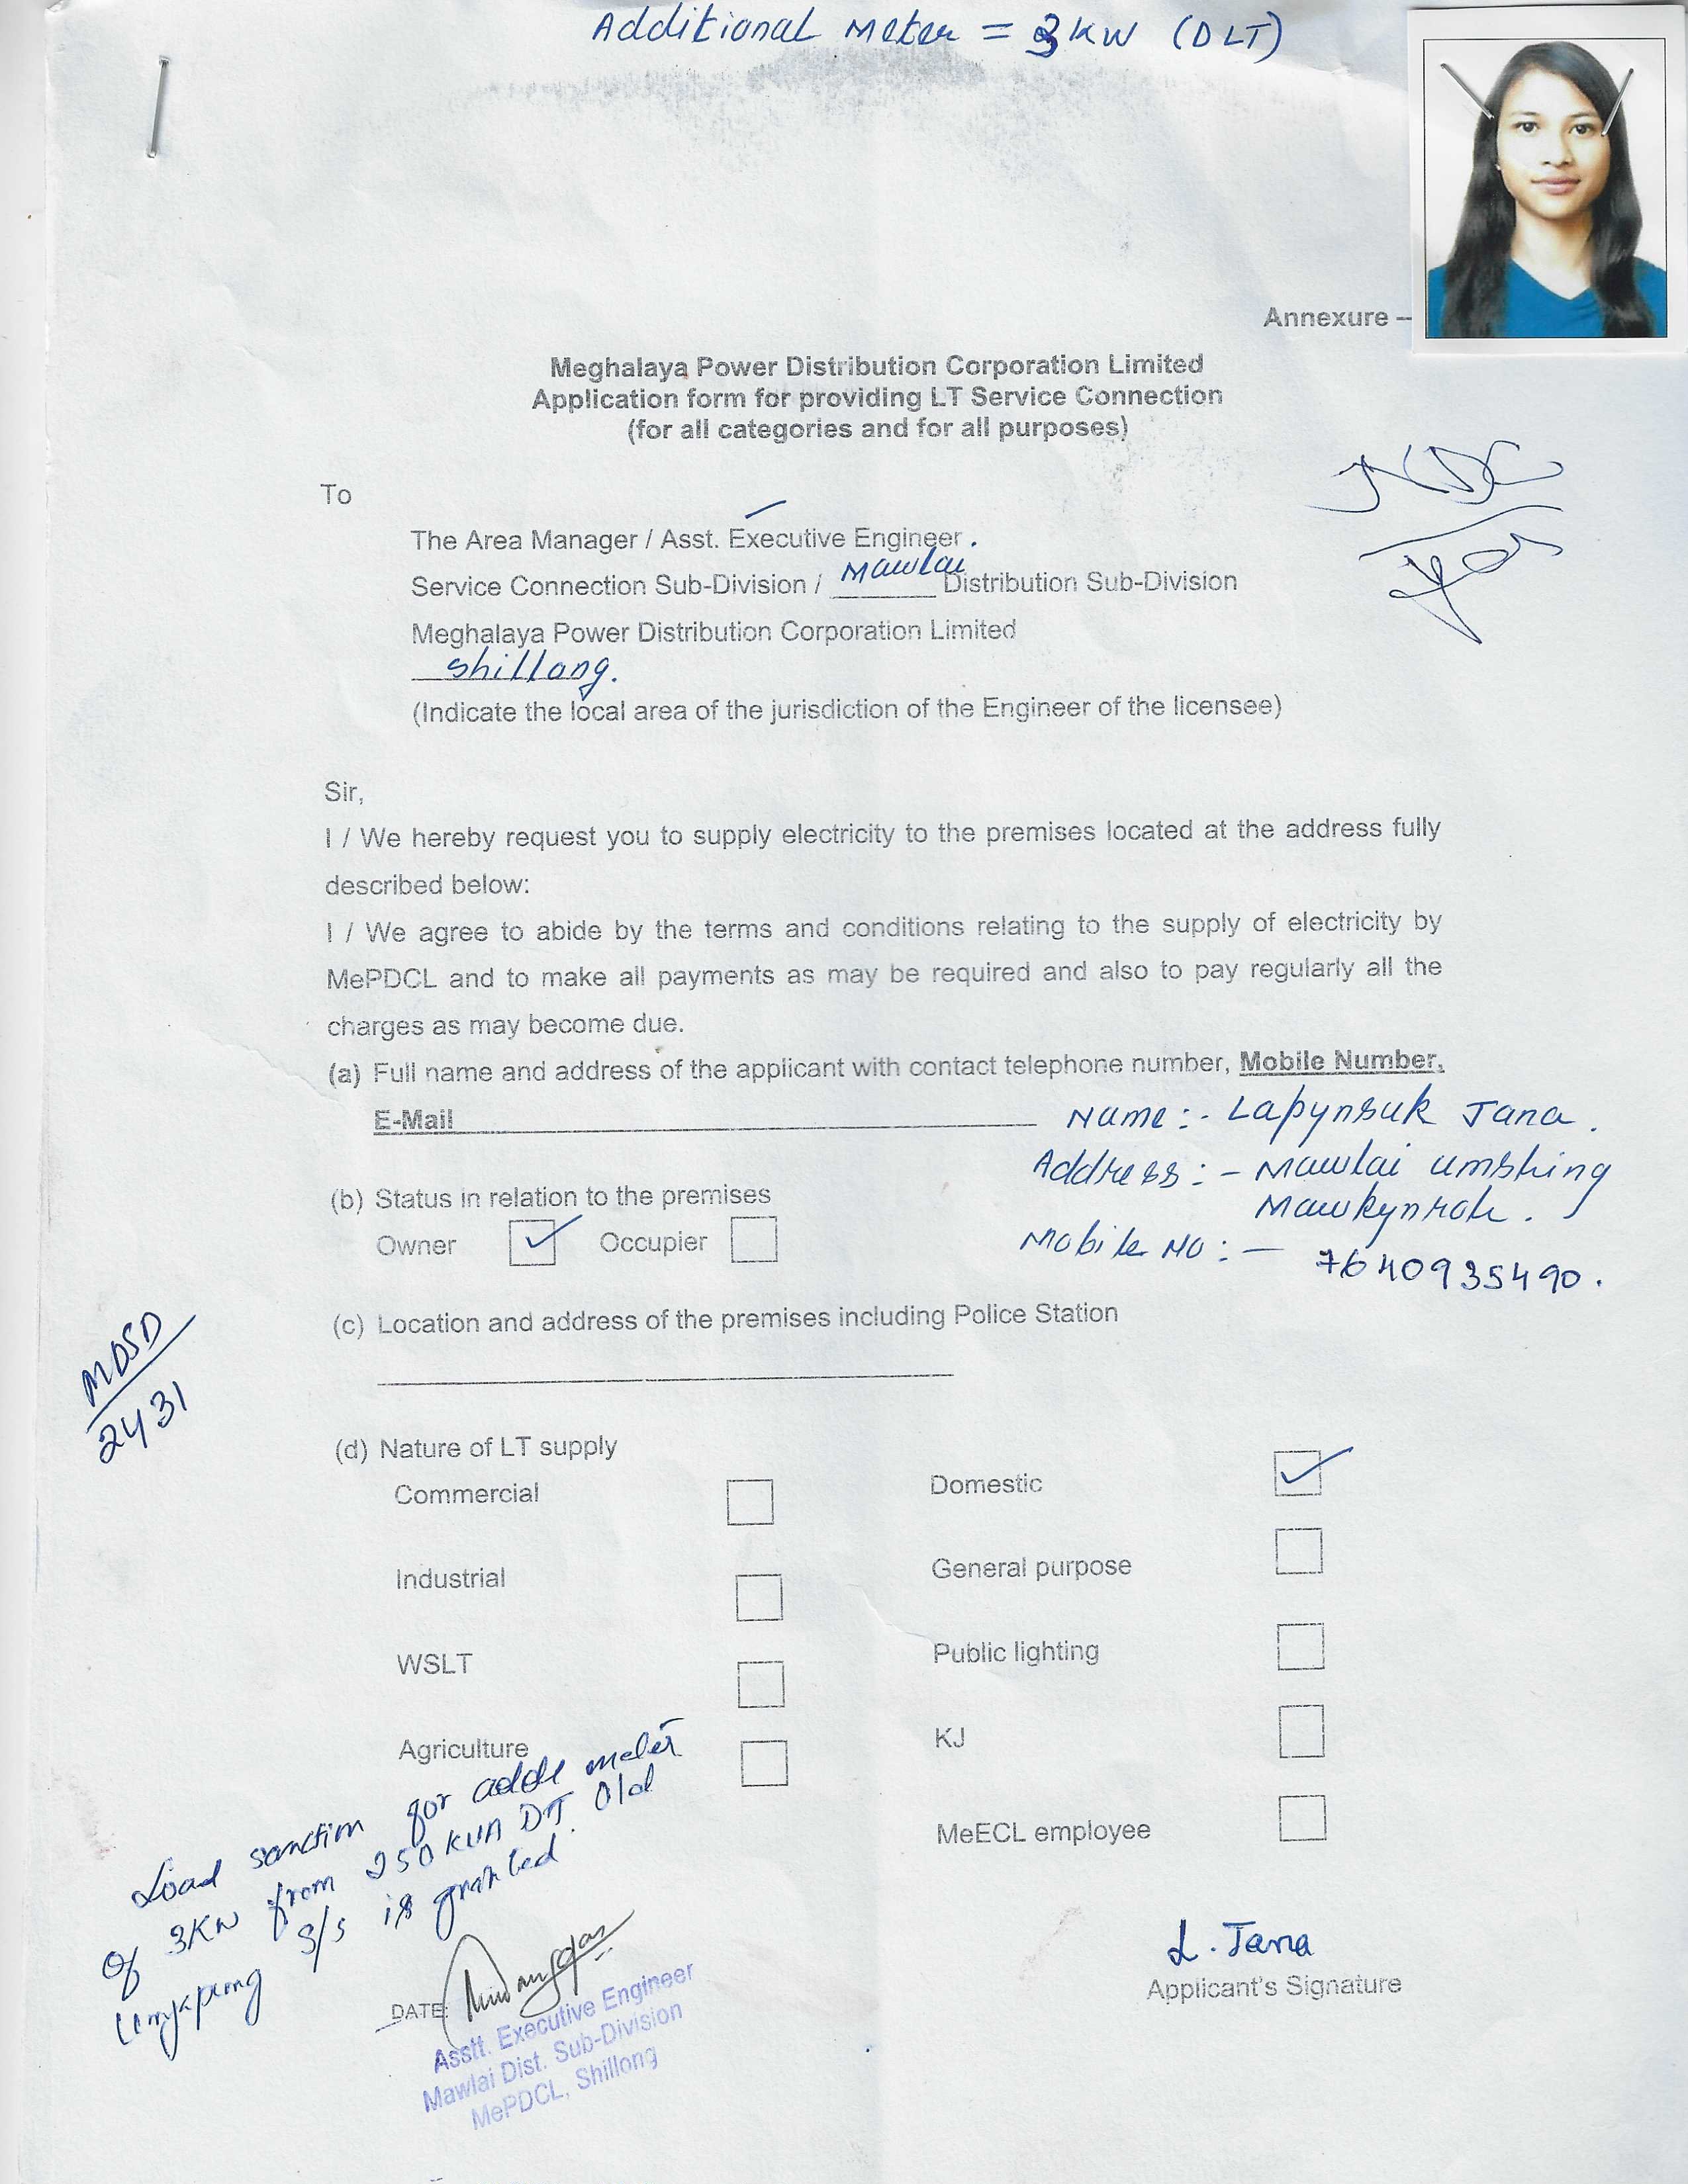 Additional Meter = 3 KW (DLT)
Annexure –
Meghalaya Power Distribution Corporation Limited
Application form for providing LT Service Connection
(for all categories and for all purposes)
To
The Area Manager / Asst. Executive Engineer.
Service Connection Sub-Division / Mawlai Distribution Sub-Division
Meghalaya Power Distribution Corporation Limited
Shillong.
(Indicate the local area of the jurisdiction of the Engineer of the licensee)
Sir,
I / We hereby request you to supply electricity to the premises located at the address fully
described below:
I / We agree to abide by the terms and conditions relating to the supply of electricity by
MePDCL and to make all payments as may be required and also to pay regularly all the
charges as may become due.
(a) Full name and address of the applicant with contact telephone number, Mobile Number,
E-Mail
Name :- Lapynsuk Jana.
Address :- Mawlai Umshing
Mawkynroh.
Mobile No :- 7640935490.
(b) Status in relation to the premises
Owner Occupier
(c) Location and address of the premises including Police Station
MDSD
2431
(d) Nature of LT supply
Commercial Domestic
Industrial General purpose
WSLT Public lighting
Agriculture KJ
MeECL employee
Load sanction for addl meter
of 3KW from 250 KVA DT Old
S/S is granted
L. Jana
Applicant's Signature
DATE:
Asstt. Executive Engineer
Mawlai Dist. Sub-Division
MePDCL, Shillong